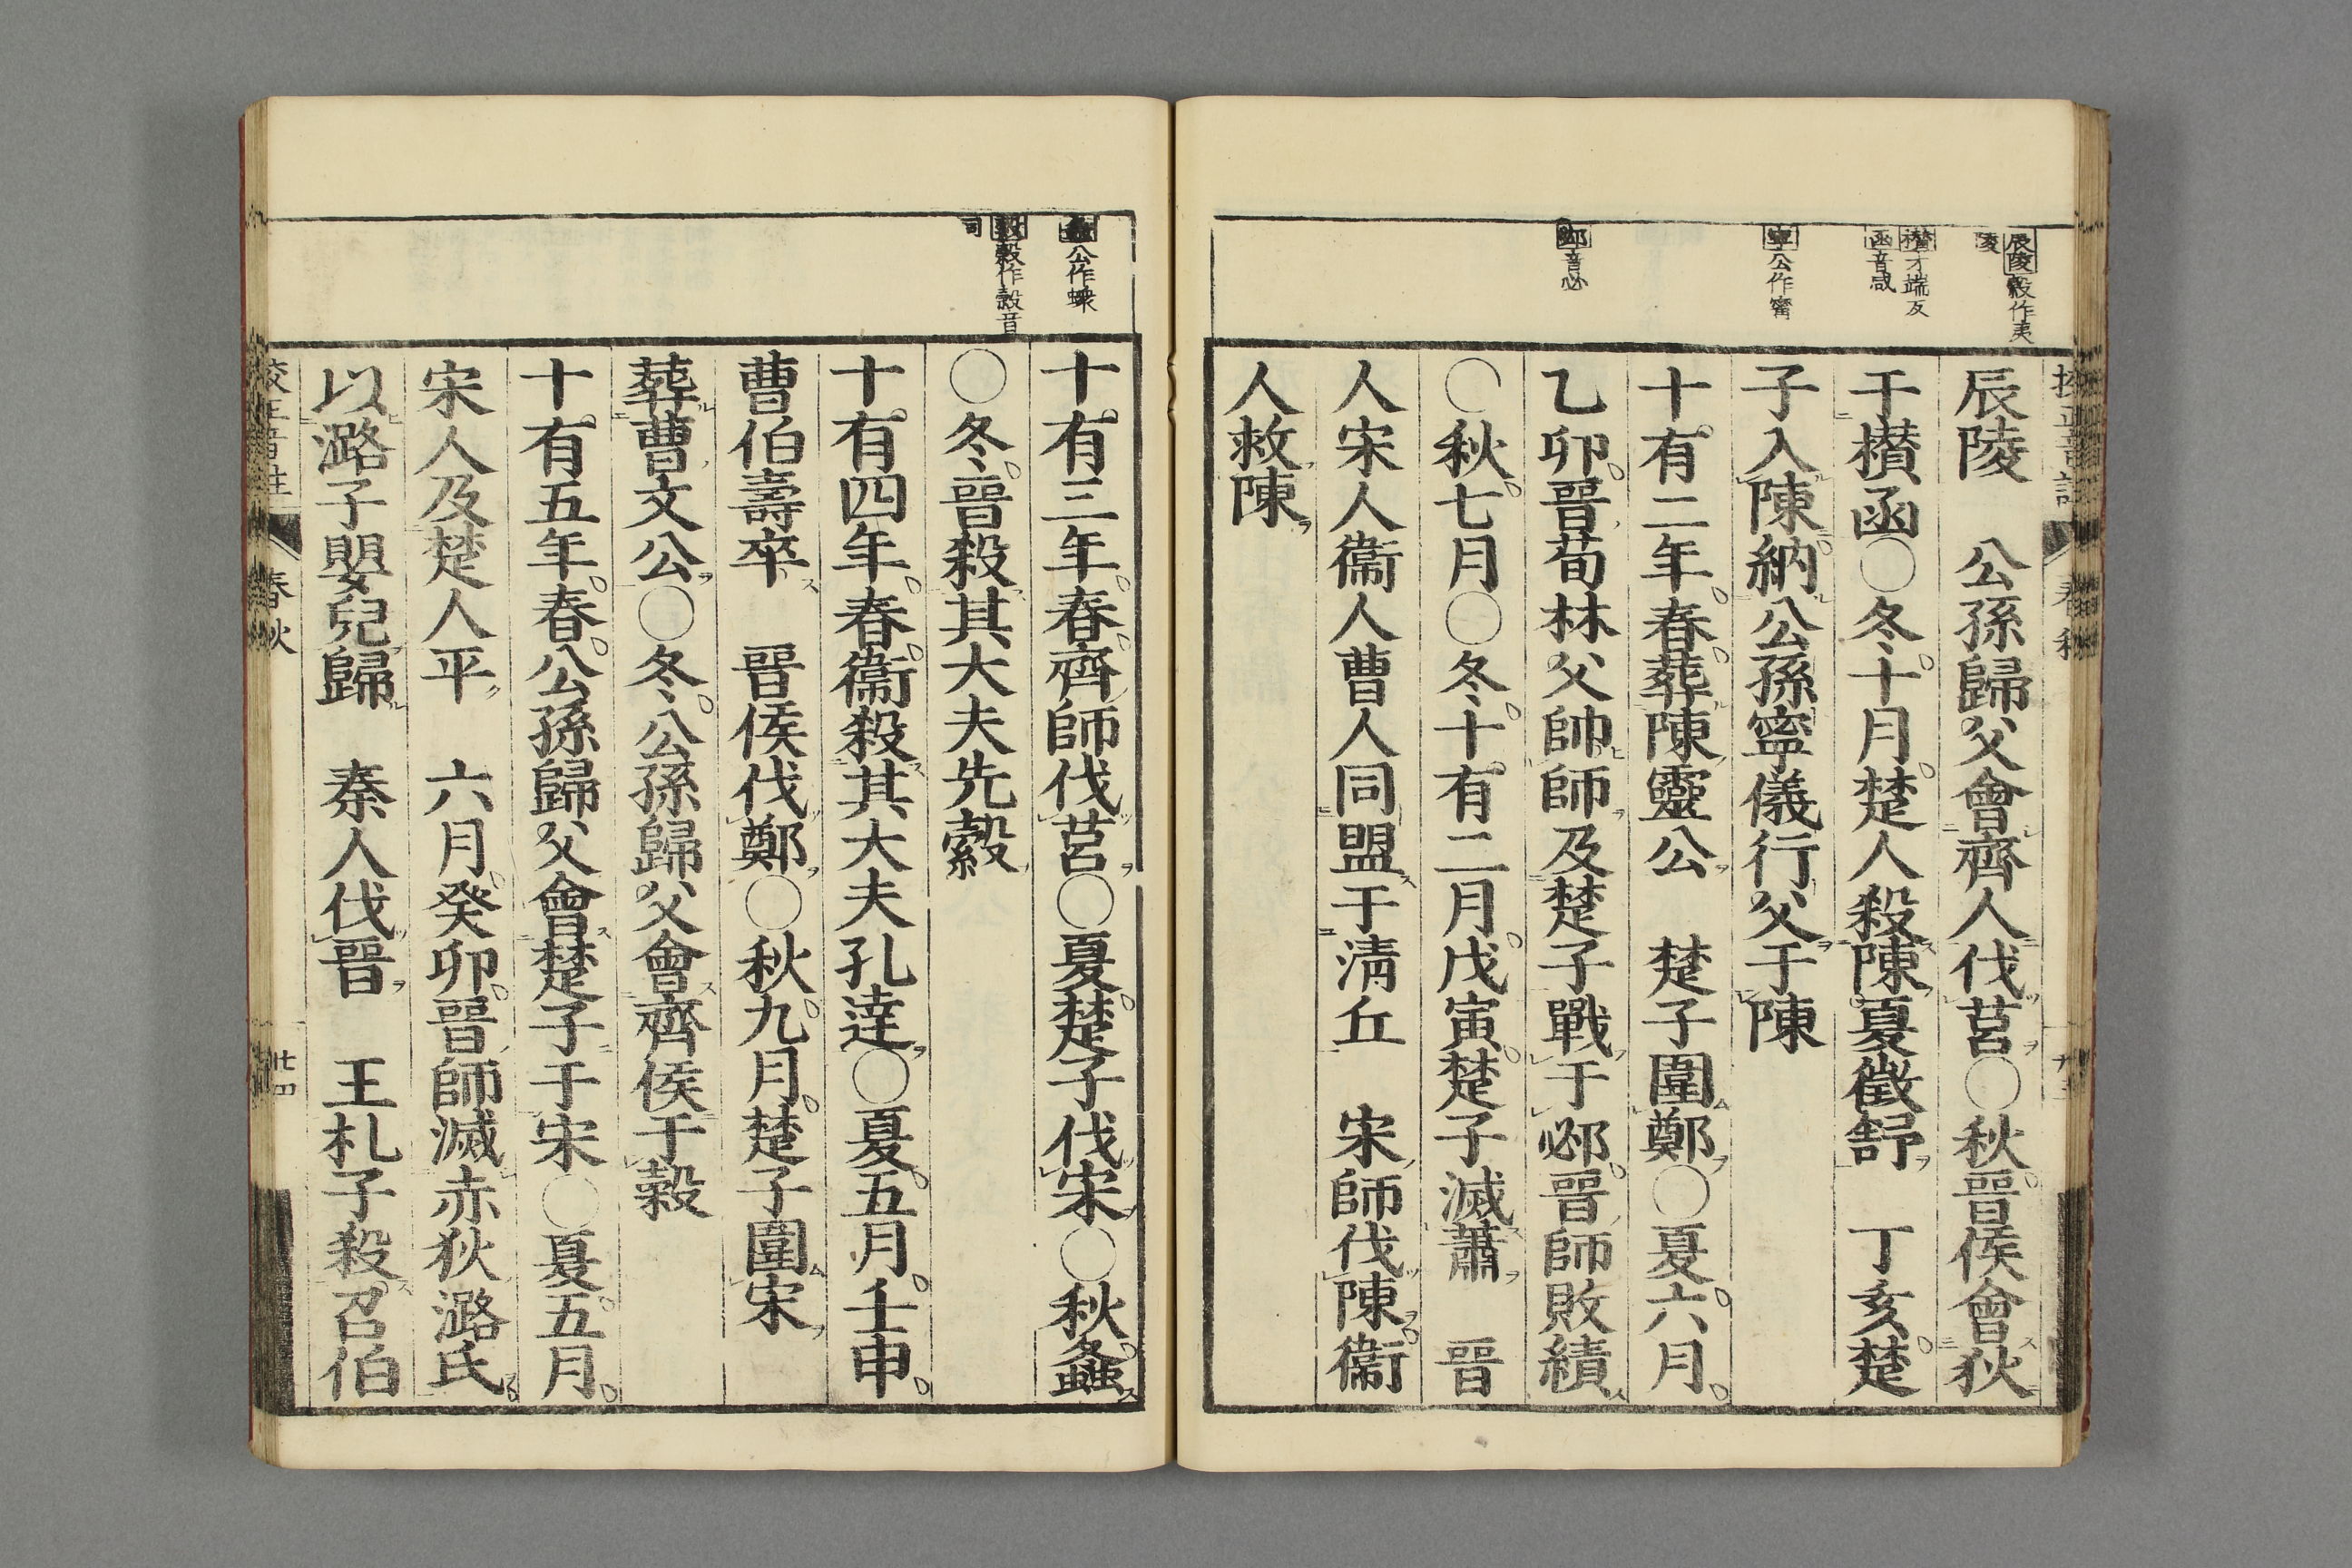 辰陵穀作夷
陵
欑才端反
函音咸
寧公作甯
邲音必
辰陵　公孫歸父會齊人伐莒○秋晉侯會狄
于欑函○冬十月楚人殺陳夏徵舒　丁亥楚
子入陳納公孫寧儀行父于陳
十有二年春葬陳靈公　楚子圍鄭○夏六月
乙卯晉荀林父帥師及楚子戰于邲晉師敗績
○秋七月○冬十有二月戊寅楚子滅蕭　晉
人宋人衞人曹人同盟于淸丘　宋師伐陳衞
人救陳
公作蝝
穀作縠音
同
十有三年春齊師伐莒○夏楚子伐宋○秋螽
○冬晉殺其大夫先縠
十有四年春衞殺其大夫孔達○夏五月壬申
曹伯壽卒　晉侯伐鄭○秋九月楚子圍宋
葬曹文公○冬公孫歸父會齊侯于穀
十有五年春公孫歸父會楚子于宋○夏五月
宋人及楚人平　六月癸卯晉師滅赤狄潞氏
以潞子嬰兒歸　秦人伐晉　王札子殺召伯
校正音註　春秋　廿四